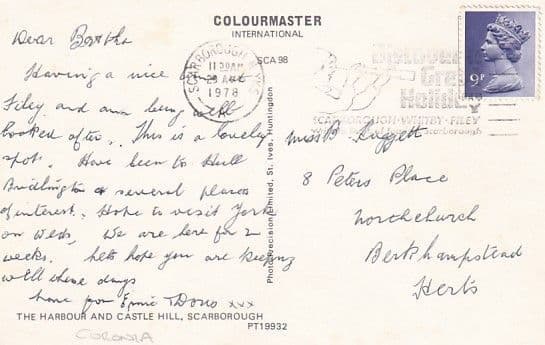 COLOURMASTER
INTERNATIONAL
SCA98
SCARBOROUGH
1978
Discover
Great
Holiday
SCARBOROUGH·WHITBY·FILEY
Scarborough
9P
Dear Bertha
Having a nice
Filey and am being well
looked after. This is a lovely
spot. Have been to Hull
Bridlington & several places
of interest. Hope to visit York
on Weds, We are here for 2
weeks. Lets hope you are keeping
well these days
love from Ernie Doris xxx
Miss B
8 Peters Place
Northchurch
Berkhampstead
Herts
Photo Precision Limited, St. Ives, Huntingdon
THE HARBOUR AND CASTLE HILL, SCARBOROUGH
PT19932
CORONIA